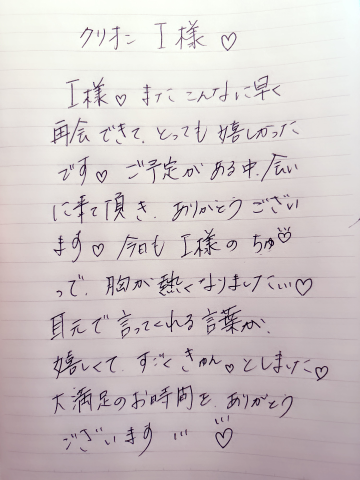 クリオネ I様♡
I様♡またこんなに早く
再会できて、とっても嬉しかった
です♡ご予定がある中、会い
に来て頂き、ありがとうござい
ます♡今日もI様のちゅ♡
っで、胸が熱くなりました…♡
耳元で言ってくれる言葉が、
嬉しくて、すごくきゅん♡としました♡
大満足のお時間を、ありがとう
ございます…♡